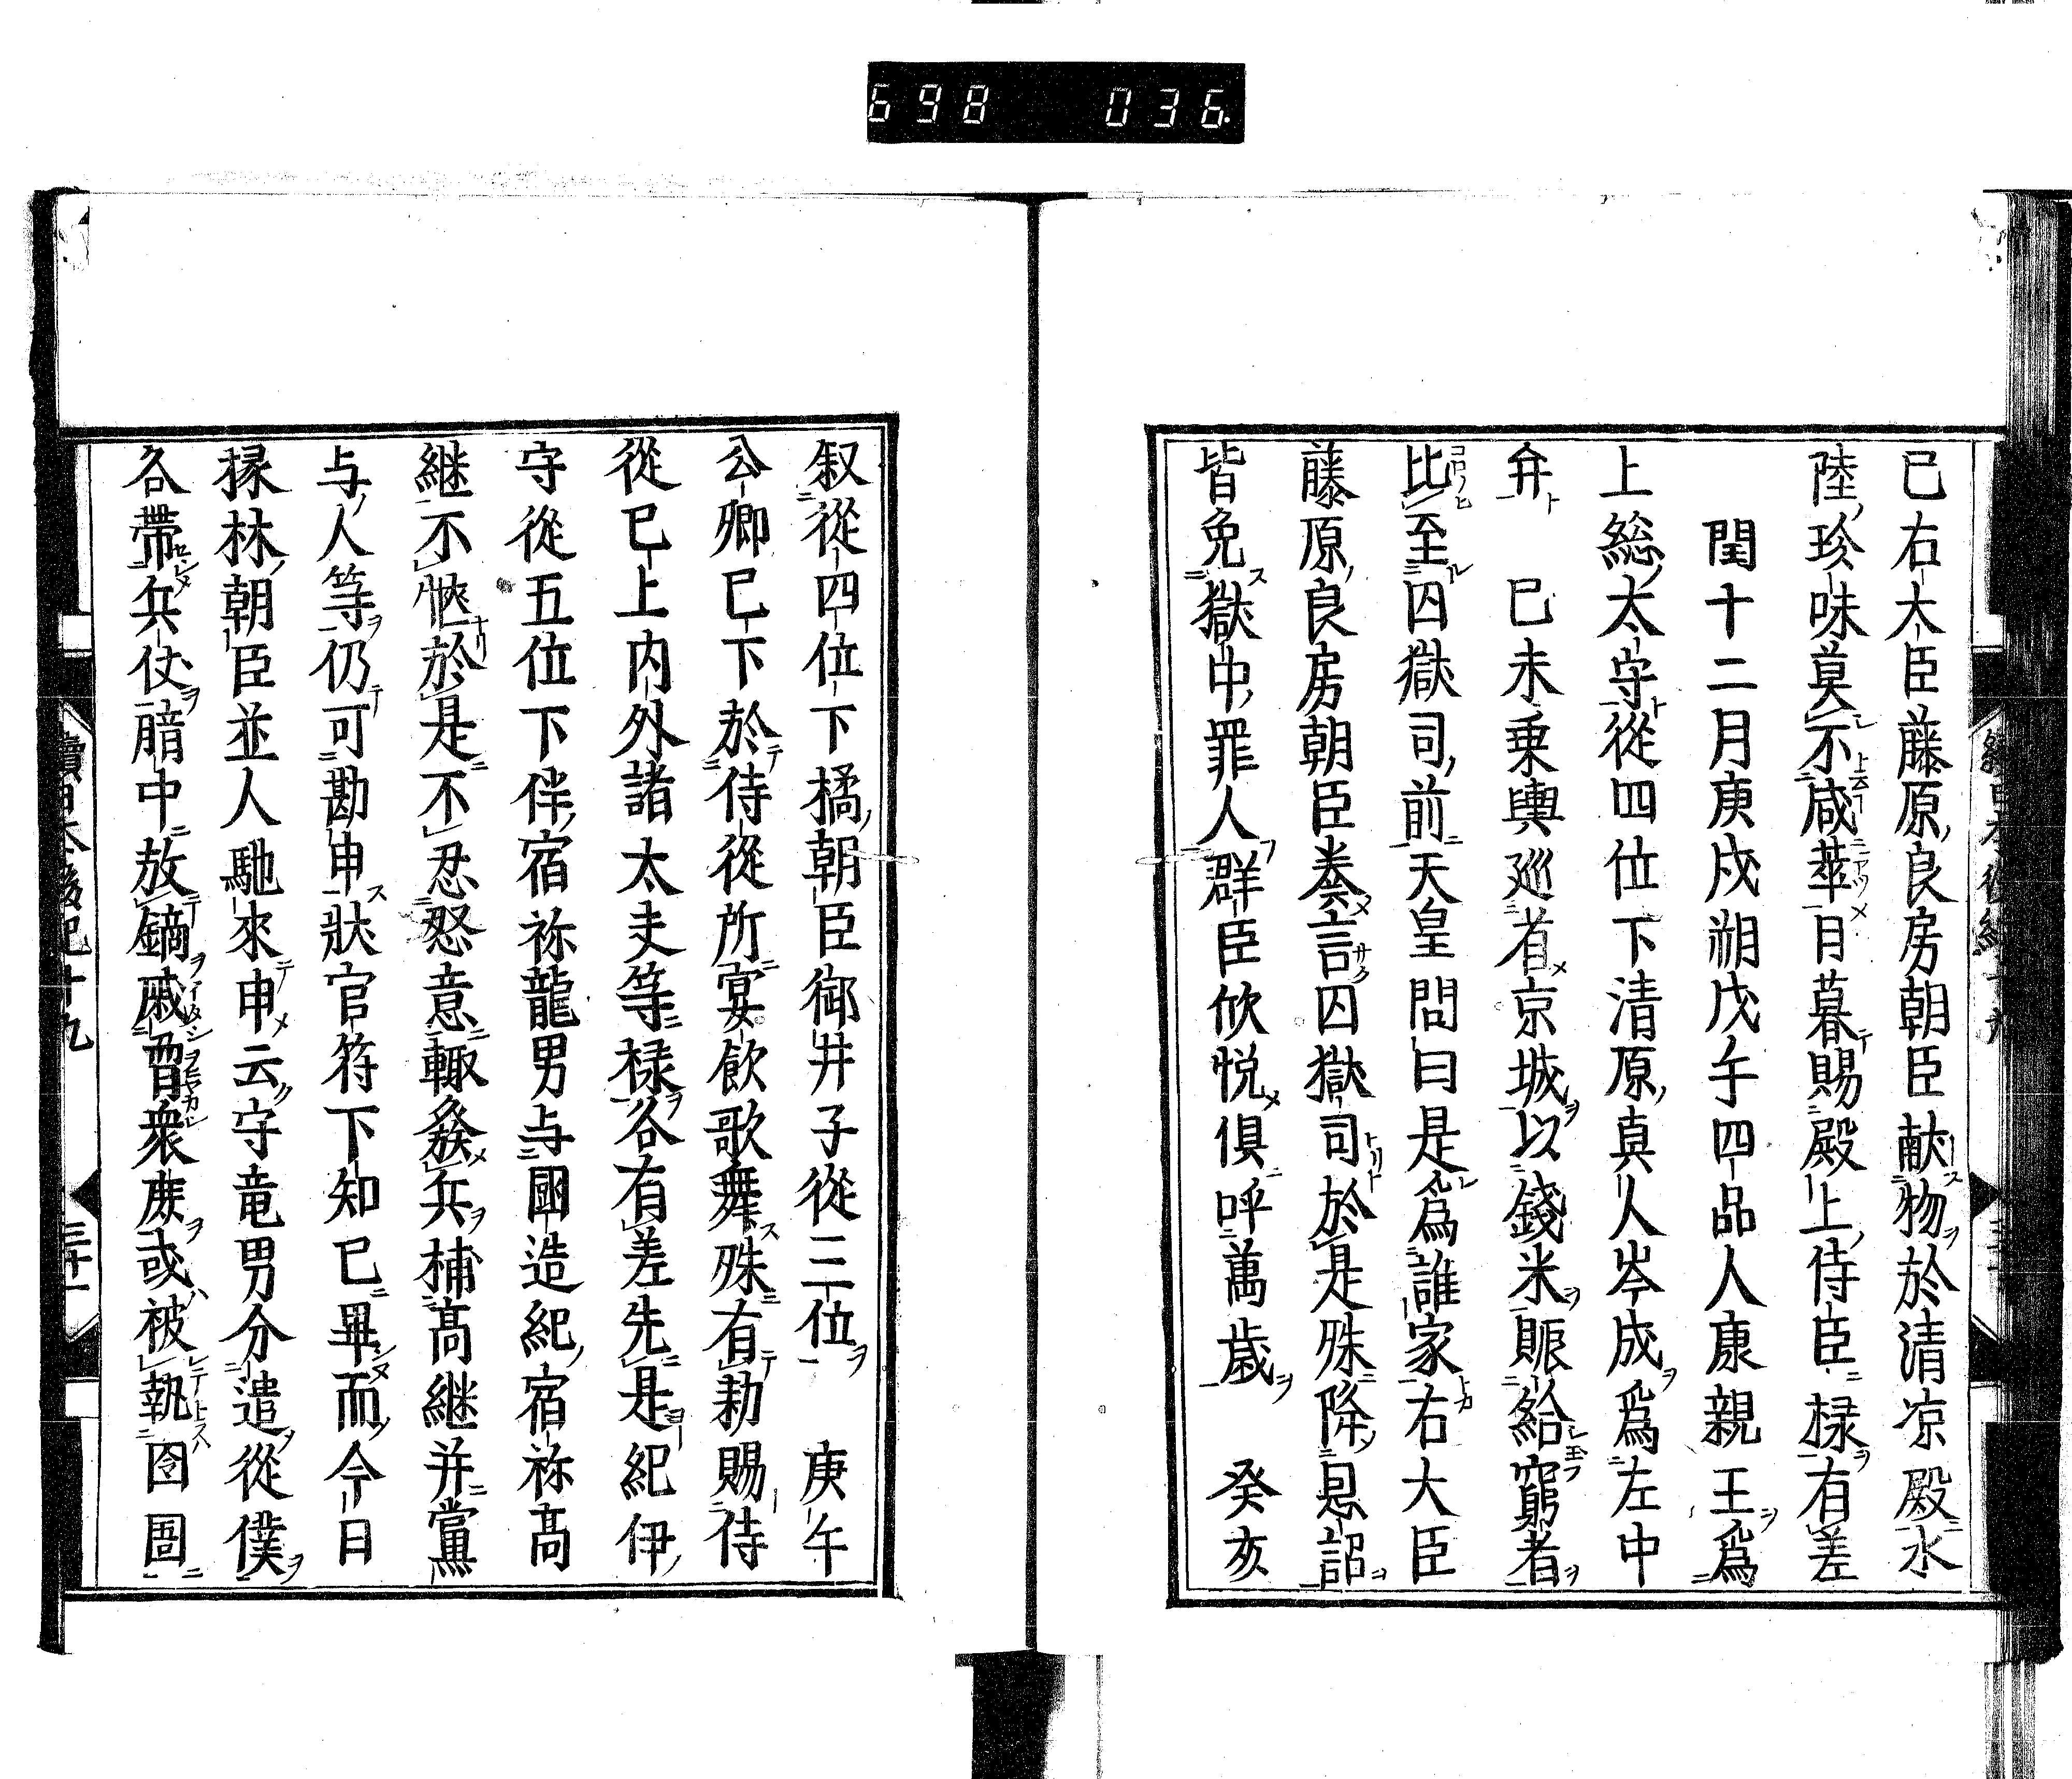 698 036
已右大臣藤原良房朝臣献物於清凉殿水
陸珍味莫不咸萃日暮賜殿上侍臣禄有差
閏十二月庚戌朔戊午四品人康親王爲
上総太守從四位下清原真人岑成爲左中
弁 已未乗輿巡省京城以錢米賑給窮者
比至囚獄司前天皇問曰是爲誰家右大臣
藤原良房朝臣奏言囚獄司於是殊降恩詔
皆免獄中罪人群臣欣悦倶呼萬歳 癸亥
叙從四位下橘朝臣御井子從三位 庚午
公卿已下於侍從所宴飲歌舞殊有勅賜侍
從已上内外諸太夫等禄各有差先是紀伊
守從五位下伴宿祢龍男与國造紀宿祢高
継不愜於是不忍怒意輙發兵捕髙継并黨
与人等仍可勘申状官符下知已畢而今日
掾林朝臣並人馳來申云守竜男分遣從僕
各帶兵仗暗中放鏑威脅衆庶或被執囹圄
續日本後紀十九 三十一